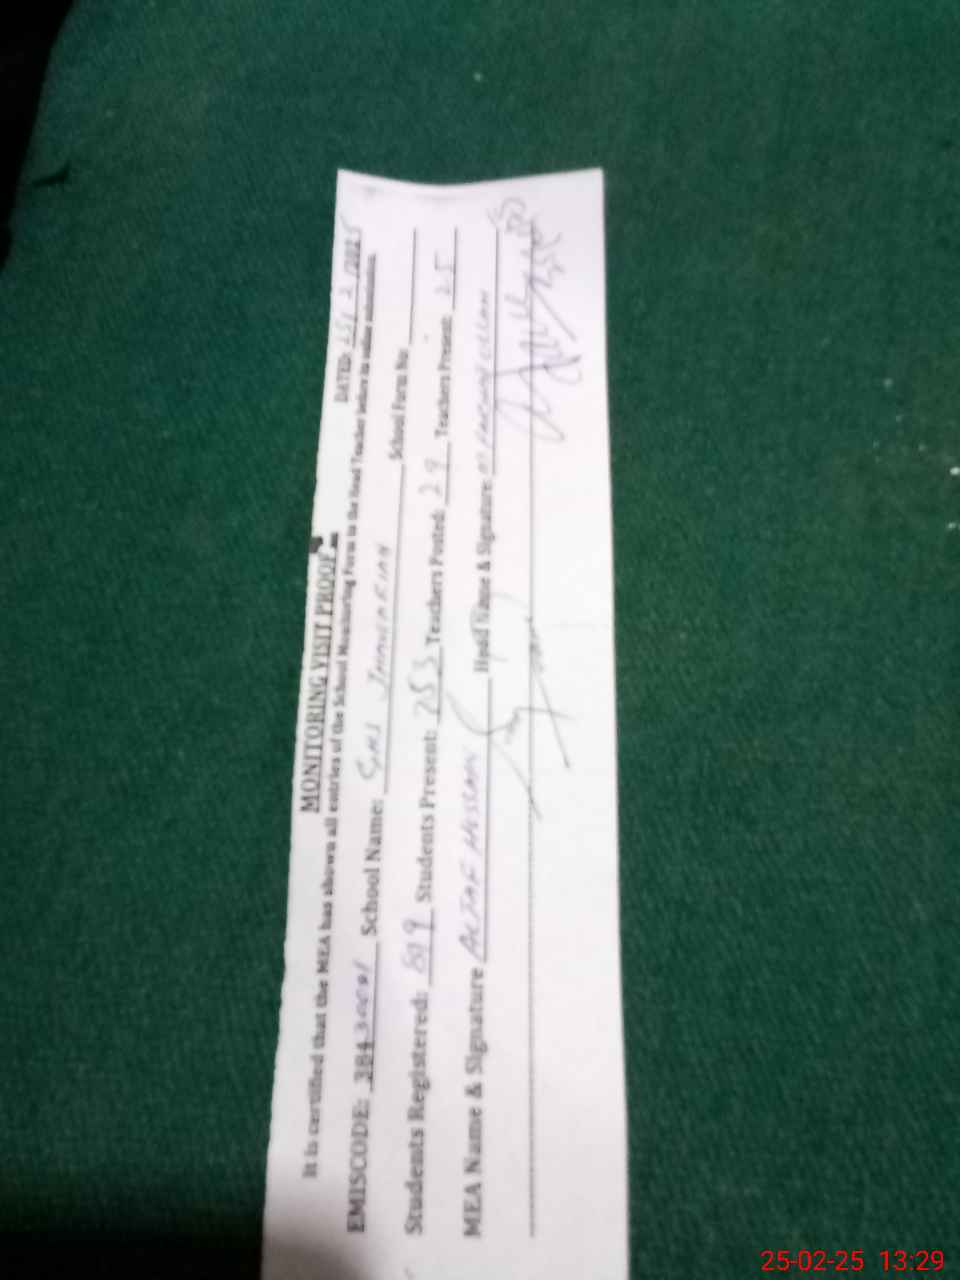 MONITORING VISIT PROOF DATED: 25/2/2025
It is certified that the MEA has shown all entries of the School Monitoring Form to the Head Teacher before its online submission.
EMISCODE: 38430001 School Name: GHS School Form No:
Students Registered: 819 Students Present: 253 Teachers Posted: 29 Teachers Present: 25
MEA Name & Signature ALTAF HUSSAIN Head Name & Signature:
25-02-25 13:29